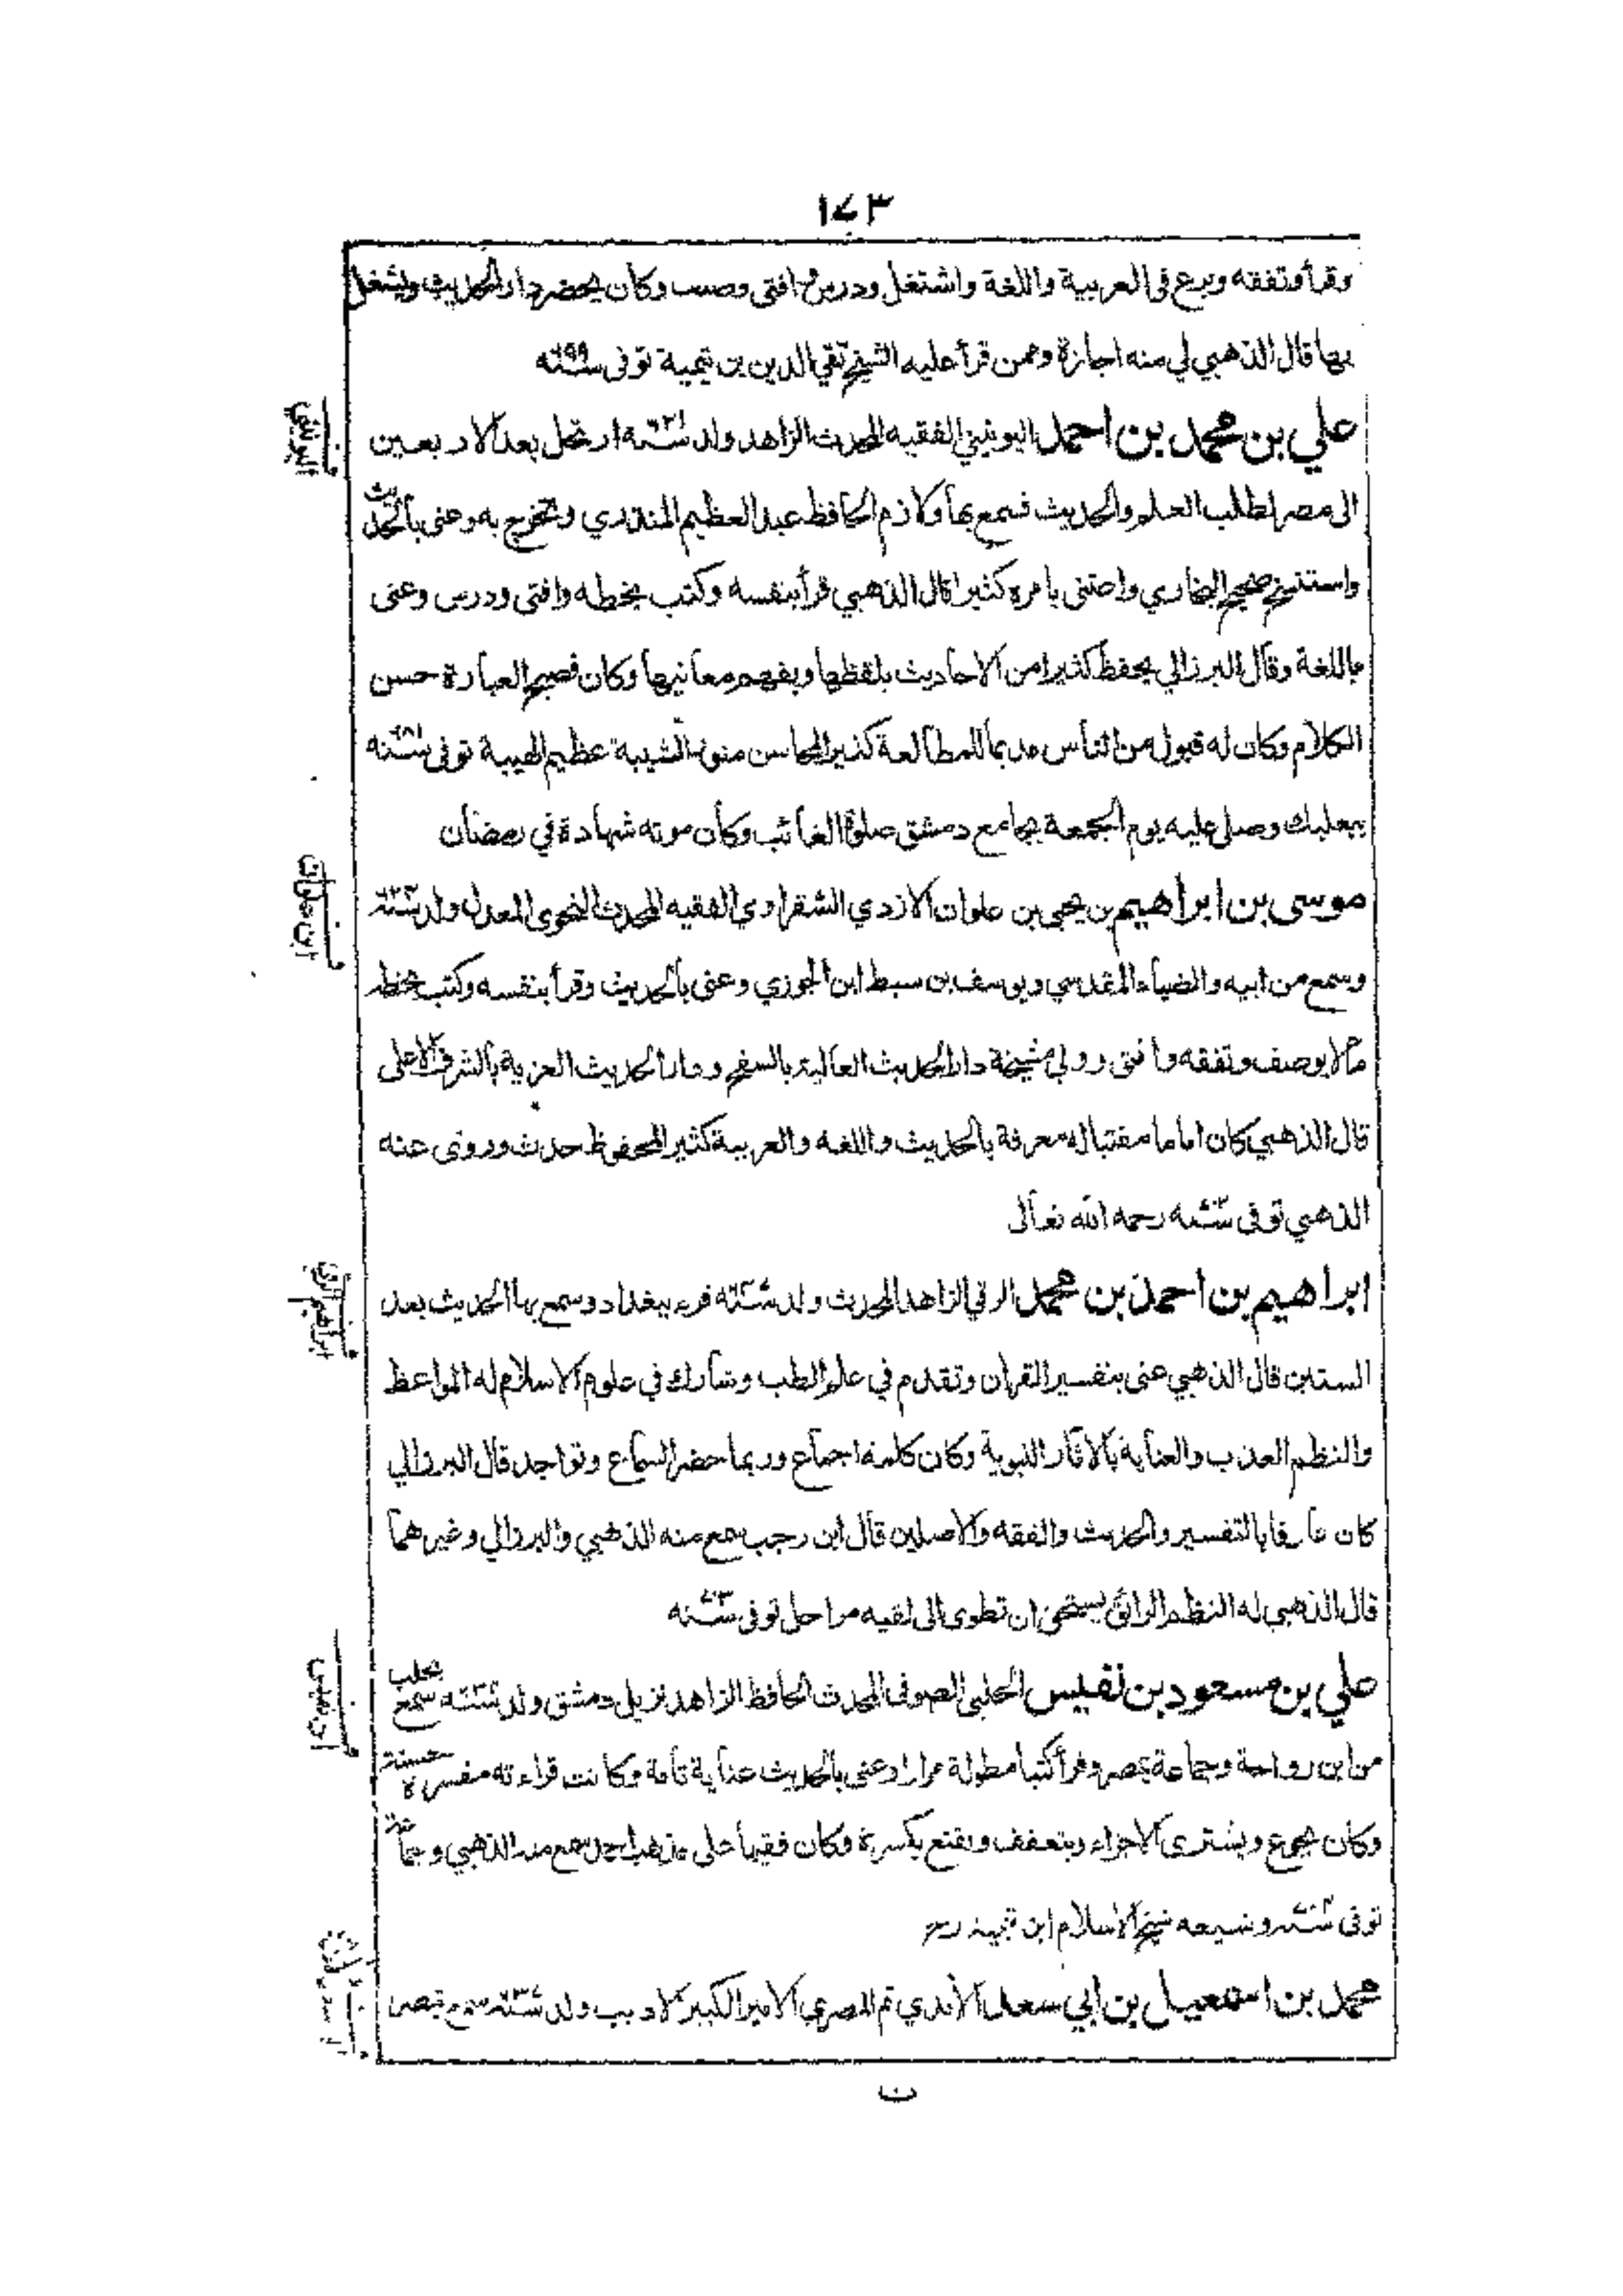 ١٧٣
وقرأ وتفقه وبرع في العربية واللغة واشتغل ودرس وافتى وصنف وكان يحضر دار الحديث ويشغل
بها قال الذهبي لي منه اجازة وممن قرأ عليه الشيخ تقي الدين بن تيمية توفى سنة ٦٩٩
علي بن محمد بن احمد اليونيني الفقيه المحدث الزاهد ولد سنة ٦٢١ ارتحل بعد الاربعين
الى مصر لطلب العلم والحديث فسمع بها ولازم الحافظ عبد العظيم المنذري وتخرج به وعنى بالحديث
واستنسخ صحيح البخاري واعتنى بامره كثيرا قال الذهبي قرأ بنفسه وكتب بخطه وافتى ودرس وعنى
باللغة وقال البرزالي يحفظ كثيرا من الاحاديث بلفظها ويفهم معانيها وكان فصيح العبارة حسن
الكلام وكان له قبول من الناس مديما للمطالعة كثير المحاسن منور الشيبة عظيم الهيبة توفى
ببعلبك وصلى عليه يوم الجمعة بجامع دمشق صلوة الغائب وكان موته شهادة في رمضان
موسى بن ابراهيم بن يحيى بن علوان الازدي الشقراوي الفقيه المحدث النحوي المعدل ولد
وسمع من ابيه والضياء المقدسي ويوسف بن سبط ابن الجوزي وعنى بالحديث وقرأ بنفسه وكتب بخطه
ما لا يوصف وتفقه وافتى وولي مشيخة دار الحديث العالية بالسفح ودار الحديث العزية بالشرف الاعلى
قال الذهبي كان اماما مفتيا له معرفة بالحديث واللغة والعربية كثير المحفوظ حدث وروى عنه
الذهبي توفى رحمه الله تعالى
ابراهيم بن احمد بن محمد الرقي الزاهد المحدث ولد قرء ببغداد وسمع بها الحديث بعد
الستين قال الذهبي عنى بتفسير القران وتقدم في علم الطب وشارك في علوم الاسلام له المواعظ
والنظم العذب والعناية بالاثار النبوية وكان كلمة اجماع وربما حضر السماع وتواجد قال البرزالي
كان عارفا بالتفسير والحديث والفقه والاصلين قال ابن رجب سمع منه الذهبي والبرزالي وغيرهما
قال الذهبي له النظم الرائق يستحق ان تطوى الى لقيه مراحل توفى سنة ٧٠٣
علي بن مسعود بن نفيس الحلبي الصوفي المحدث الحافظ الزاهد نزيل دمشق ولد سمع بحلب
من ابن رواحة وجماعة بمصر وقرأ كتبا مطولة مرارا وعنى بالحديث عناية تامة وكانت قراءته مفسرة حسنة
وكان يجوع ويشترى الاجزاء ويتعفف ويقنع بكسرة وكان فقيها على مذهب احمد سمع منه الذهبي وجماعة
توفى وشيعه شيخ الاسلام ابن تيمية رح
محمد بن اسمعيل بن ابي سعد الآمدي ثم المصري الامير الكبير الاديب ولد سمع بمصر
ن
اليونيني
ابن علوان
ابراهيم الرقي
ابن نفيس